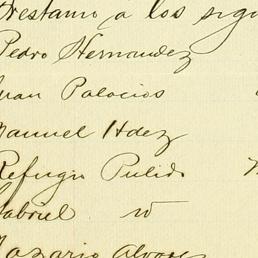 Prestamo a los sigu
Pedro Hernandez
Juan Palacios
Manuel Hdez
Refugio Pulido
Gabriel id
Nazario Alvarez